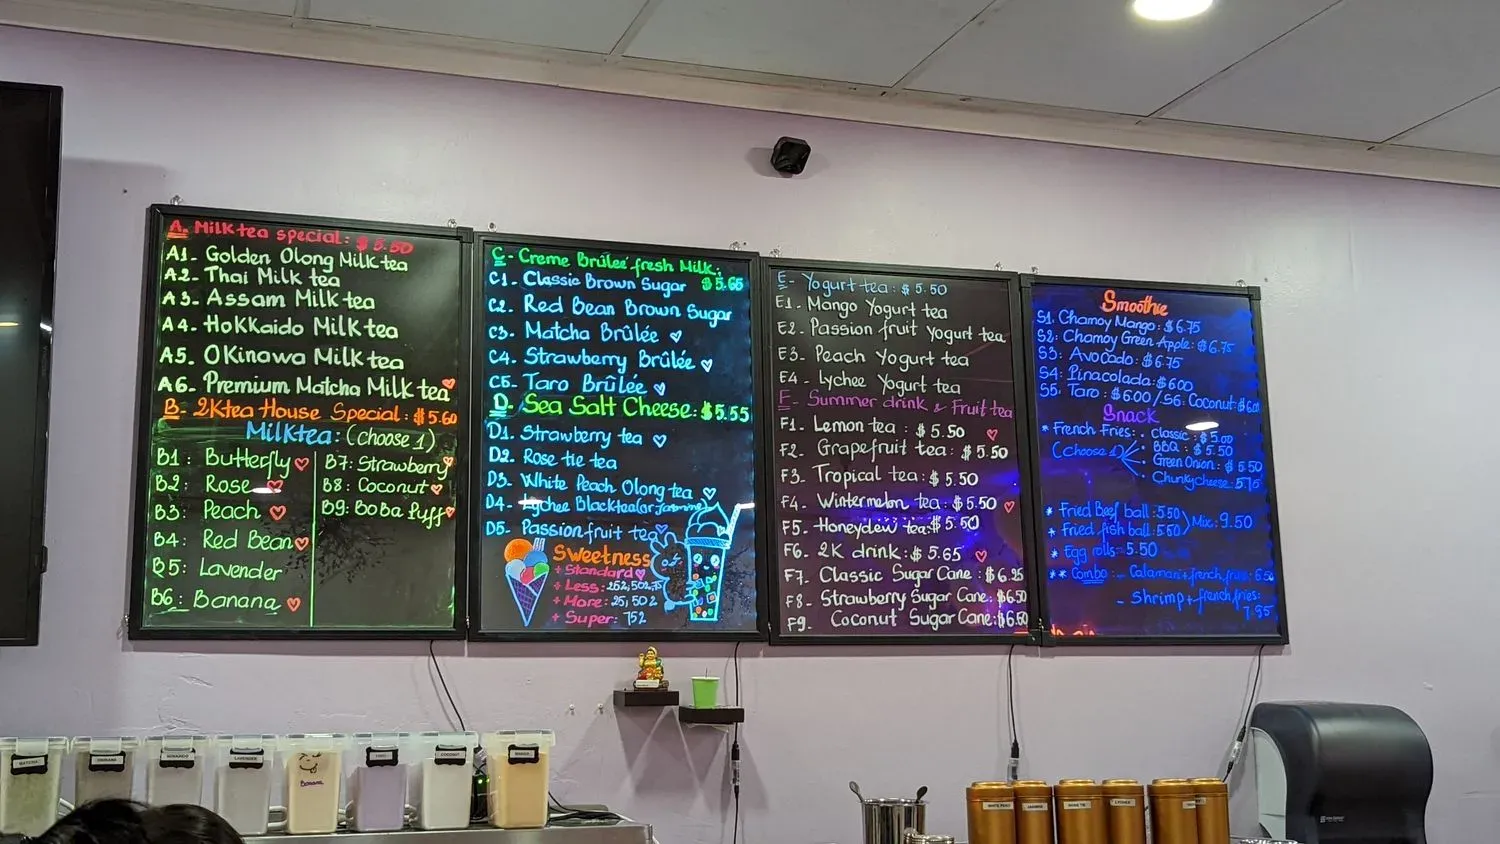 A. Milktea special: $5.50
A1- Golden Olong Milktea
A2- Thai Milk tea
A3- Assam Milktea
A4- HoKKaido Milktea
A5. OKinawa Milktea
A6. Premium Matcha Milk tea
B- 2Ktea House Special: $5.60
Milktea: (choose 1)
B1: Butterfly
B2: Rose
B3: Peach
B4: Red Bean
B5: Lavender
B6: Banana
B7: Strawberry
B8: Coconut
B9: BoBa Puff
C- Creme Brûleé fresh Milk:
C1- Classic Brown Sugar $5.65
C2- Red Bean Brown Sugar
C3- Matcha Brûlée
C4- Strawberry Brûlée
C5- Taro Brûlée
D- Sea Salt Cheese: $5.55
D1. Strawberry tea
D2. Rose tie tea
D3- White Peach Olong tea
D4- Lychee Blacktea (or Jasmine
D5- Passionfruit tea
Sweetness
+ Standard
+ Less:
+ More: 25, 50%
+ Super: 75%
E- Yogurt tea: $5.50
E1- Mango Yogurt tea
E2- Passion fruit Yogurt tea
E3- Peach Yogurt tea
E4- Lychee Yogurt tea
F- Summer drink & Fruit tea
F1. Lemon tea: $5.50
F2- Grapefruit tea: $5.50
F3- Tropical tea: $5.50
F4- Wintermelon tea: $5.50
F5- Honeydew tea: $5.50
F6. 2K drink: $5.65
F7- Classic Sugar Cane: $6.25
F8- Strawberry Sugar Cane: $6.50
F9- Coconut Sugar Cane: $6.50
Smoothie
S1. Chamoy Mango: $6.75
S2: Chamoy Green Apple: $6.75
S3: Avocado: $6.75
S4: Pinacolada: $6.00
S5. Taro: $6.00/S6: Coconut: $6.00
Snack
* French Fries: . Classic: $5.00
(choose 1) . BBQ: $5.50
. Green Onion: $5.50
. Chunkycheese: 5.75
* Fried Beef ball: 5.50
* Fried fish ball: 5.50 Mix: 9.50
* Egg rolls: 5.50
** Combo: - Calamari+french fries: 6.50
- Shrimp+french fries: 7.95
MATCHA
OKINAWA
HOKKAIDO
LAVENDER
Banana
TARO
COCONUT
WHITE PEACH
JASMINE
ROSE TIE
LYCHEE